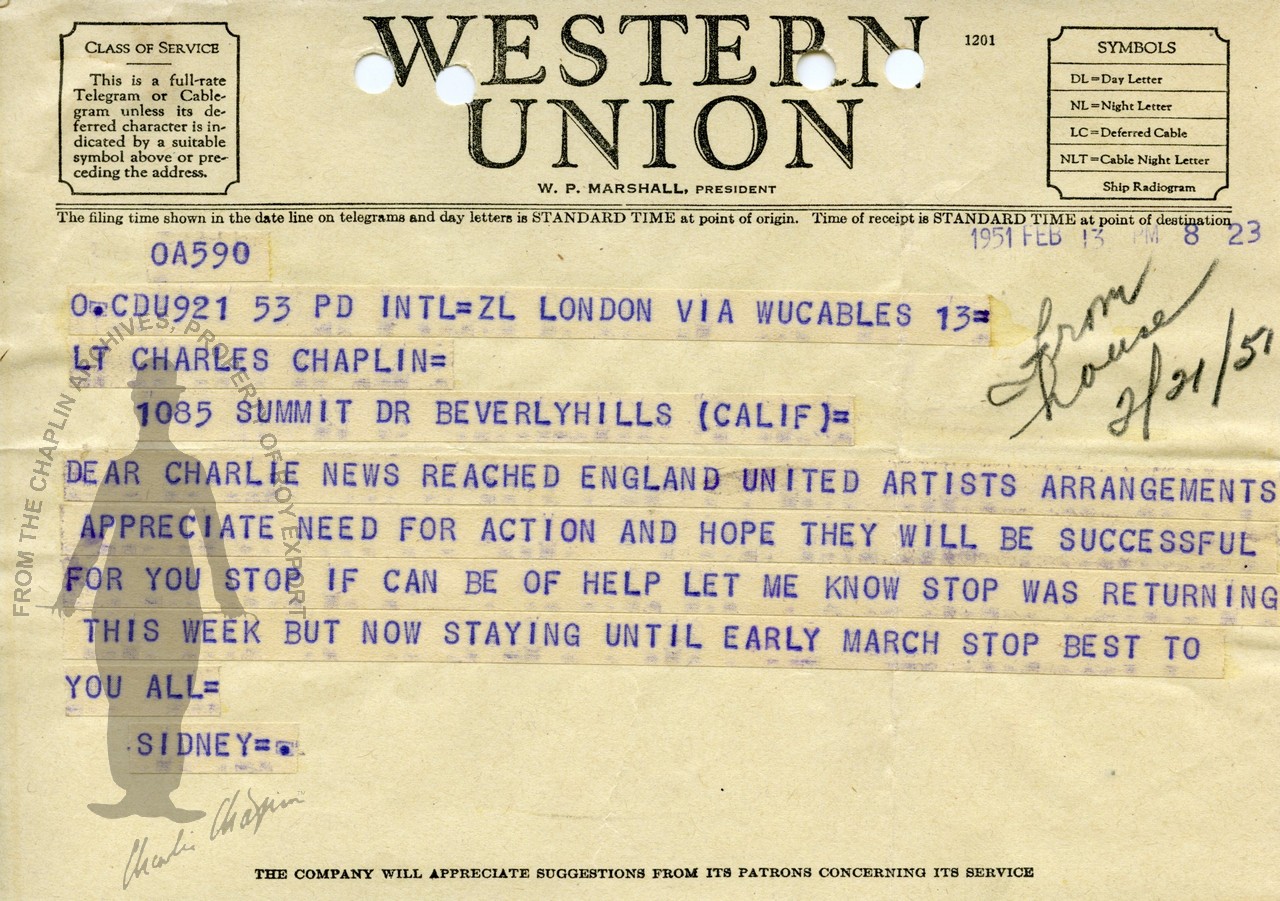 WESTERN
UNION
1201
W. P. MARSHALL, PRESIDENT
CLASS OF SERVICE
This is a full-rate
Telegram or Cable-
gram unless its de-
ferred character is in-
dicated by a suitable
symbol above or pre-
ceding the address.
SYMBOLS
DL=Day Letter
NL=Night Letter
LC=Deferred Cable
NLT=Cable Night Letter
Ship Radiogram
The filing time shown in the date line on telegrams and day letters is STANDARD TIME at point of origin. Time of receipt is STANDARD TIME at point of destination
1951 FEB 13 PM 8 23
OA590
O.CDU921 53 PD INTL=ZL LONDON VIA WUCABLES 13=
LT CHARLES CHAPLIN=
1085 SUMMIT DR BEVERLYHILLS (CALIF)=
from
house
2/21/51
DEAR CHARLIE NEWS REACHED ENGLAND UNITED ARTISTS ARRANGEMENTS
APPRECIATE NEED FOR ACTION AND HOPE THEY WILL BE SUCCESSFUL
FOR YOU STOP IF CAN BE OF HELP LET ME KNOW STOP WAS RETURNING
THIS WEEK BUT NOW STAYING UNTIL EARLY MARCH STOP BEST TO
YOU ALL=
SIDNEY=.
FROM THE CHAPLIN ARCHIVES, PROPERTY OF ROY EXPORT
Charlie Chaplin
THE COMPANY WILL APPRECIATE SUGGESTIONS FROM ITS PATRONS CONCERNING ITS SERVICE